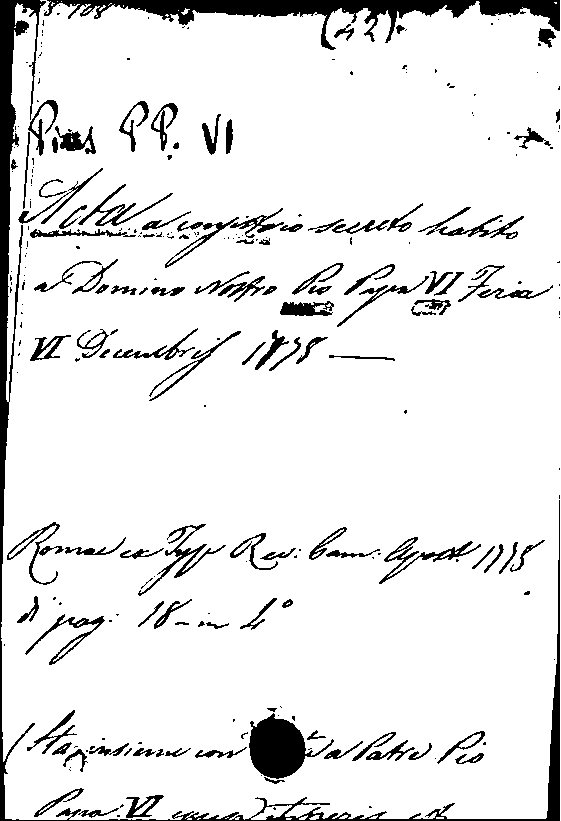 (42)
Pius PP. VI
Acta a conjistorio secreto habito
a Domino Nostro Pio Papa VI Feria
VI Decembris 1778 —
Romae ex Typ Rev: Cam: Apost. 1778
di pag. 18 - in 4°
(Sta insieme con a Patre Pio
Papa VI